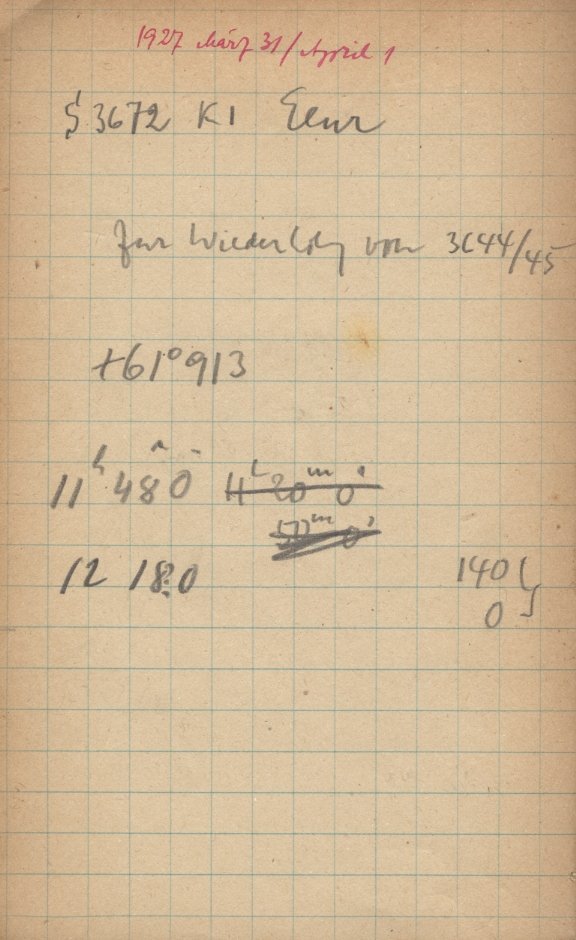 1927 März 31/April 1
§ 3672 K1
Zur Wiederholg von 3644/45
+61°913
11h 48 0 11h 20m 0s
50m 0s
12 18 0 140
0